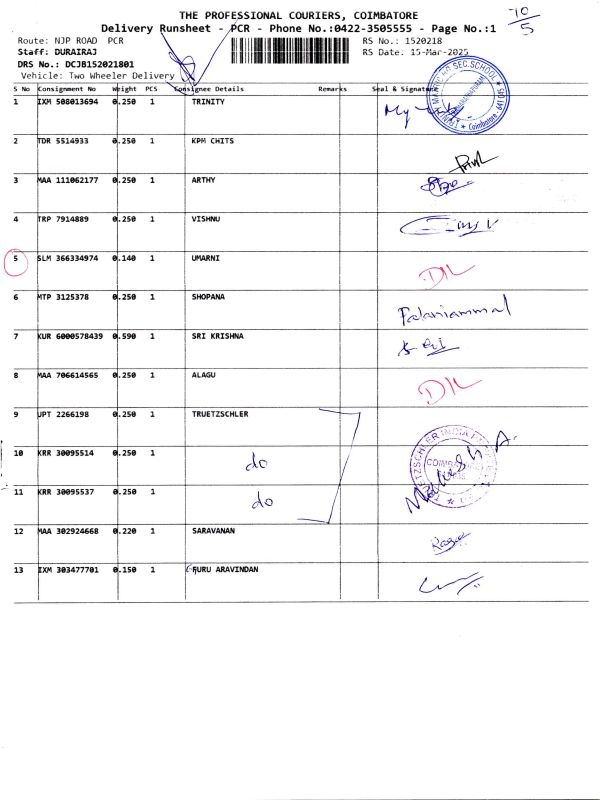 THE PROFESSIONAL COURIERS, COIMBATORE
10/5
Delivery Runsheet - PCR - Phone No.:0422-3505555 - Page No.:1
Route: NJP ROAD PCR
RS No.: 1520218
Staff: DURAIRAJ
RS Date: 15-Mar-2025
DRS No.: DCJB152021801
Vehicle: Two Wheeler Delivery
S No Consignment No Weight PCS Consignee Details Remarks Seal & Signature
1 IXM 508013694 0.250 1 TRINITY
SEC.SCHOOL Coimbatore - 641 045
2 TDR 5514933 0.250 1 KPM CHITS
3 MAA 111062177 0.250 1 ARTHY
4 TRP 7914889 0.250 1 VISHNU
5 SLM 366334974 0.140 1 UMARNI DIL
6 MTP 3125378 0.250 1 SHOPANA Palaniammal
7 KUR 6000578439 0.590 1 SRI KRISHNA
8 MAA 706614565 0.250 1 ALAGU DIL
9 JPT 2266198 0.250 1 TRUETZSCHLER
10 KRR 30095514 0.250 1 do
TRUETZSCHLER INDIA
11 KRR 30095537 0.250 1 do
12 MAA 302924668 0.220 1 SARAVANAN
13 IXM 303477701 0.150 1 GURU ARAVINDAN